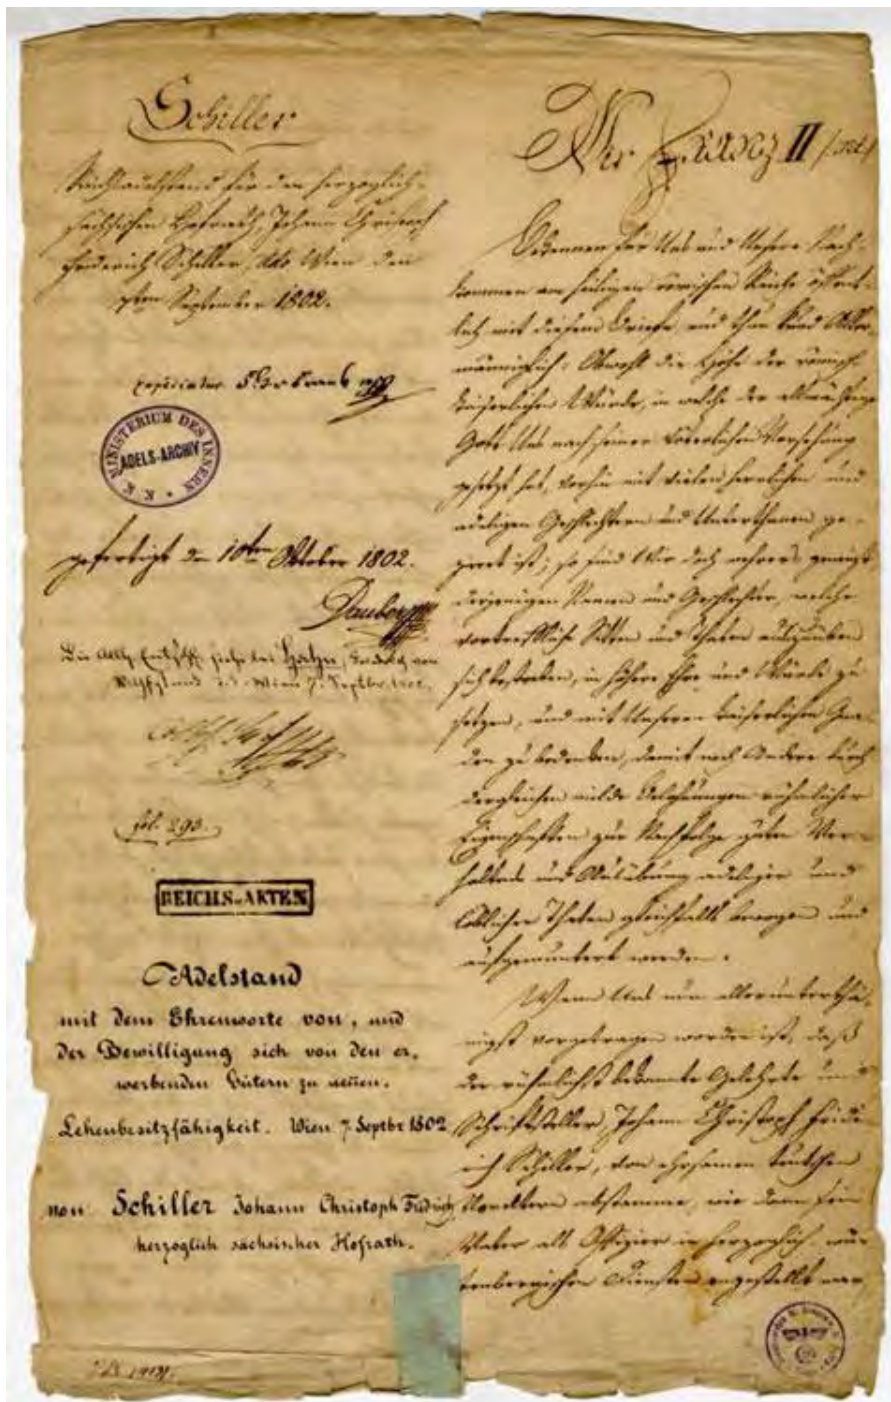 Schiller
Reichsadelstand für den herzoglich-
sächsischen Hofrath, Johann Christoph
Friderich Schiller, ddo Wien den
7ten September 1802.
K. K. MINISTERIUM DES INNERN
ADELS-ARCHIV
gefertigt den 10ten Oktober 1802.
Wien 7. Septbr. 1802.
fol. 293.
REICHS-AKTEN
Adelstand
mit dem Ehrenworte von, und
der Bewilligung sich von den er-
werbenden Gütern zu nennen.
Lehenbesitzfähigkeit. Wien 7. Septbr 1802
von Schiller Johann Christoph Fridrich,
herzoglich sächsischer Hofrath.
Wir Franz II
Bekennen für Uns und Unsere Nach-
kommen am heiligen römischen Reiche öffent-
lich mit diesem Briefe und thun kund Aller-
männiglich: Obwohl die Höhe der römisch
kaiserlichen Würde, in welche der allmächtige
Gott Uns nach seiner väterlichen Vorsehung
gesetzt hat, vorhin mit vielen herrlichen und
adeligen Geschlechtern und Unterthanen ge-
zieret ist; so sind Wir doch mehrers geneigt
derjenigen Namen und Geschlechter, welche
vortreffliche Sitten und Thaten auszuüben
sich bestreben, in höhere Ehre und Würde zu
setzen, und mit Unseren kaiserlichen Gna-
den zu bedenken, damit noch Andere durch
dergleichen milde Belohnungen rühmlicher
Eigenschaften zur Nachfolge guten Ver-
haltens und Ausübung adeliger und
löblicher Thaten gleichfalls bewogen und
aufgemuntert werden.
Wenn Uns nun allerunterthä-
nigst vorgetragen worden ist, daß
der rühmlichst bekannte Gelehrte und
Schriftsteller, Johann Christoph Fride-
rich Schiller, von ehrsamen teutschen
Voreltern abstamme, wie dann sein
Vater als Offizier in herzoglich wür-
tenbergischen Diensten angestellt war